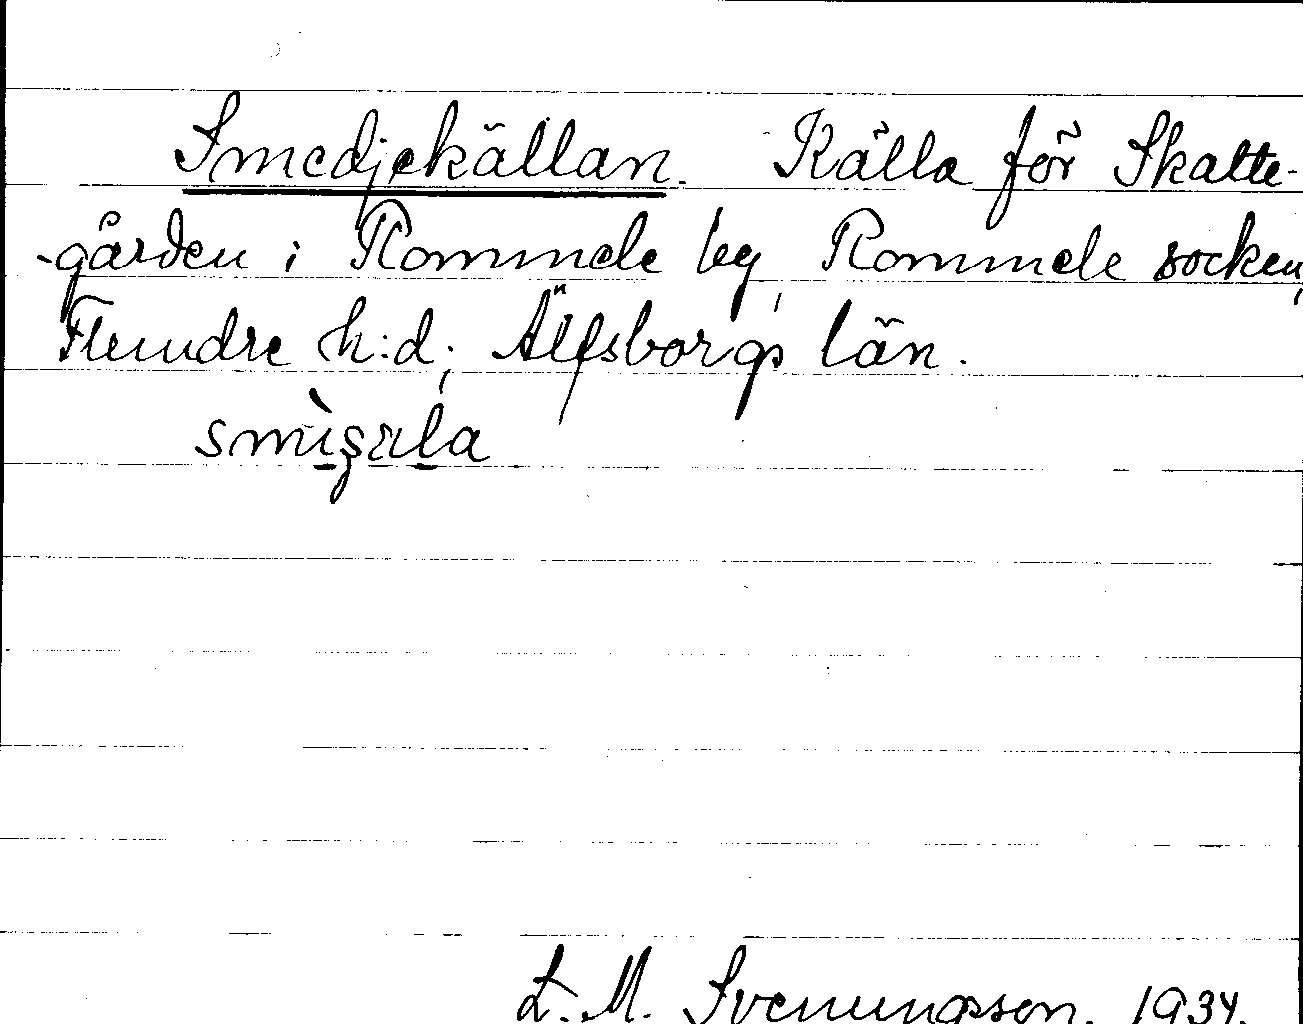 Smedjekällan. Källa för Skatte-
-gården i Rommele by, Rommele socken,
Flundre h:d, Älfsborgs län.
L. M. Svenungsson. 1934.